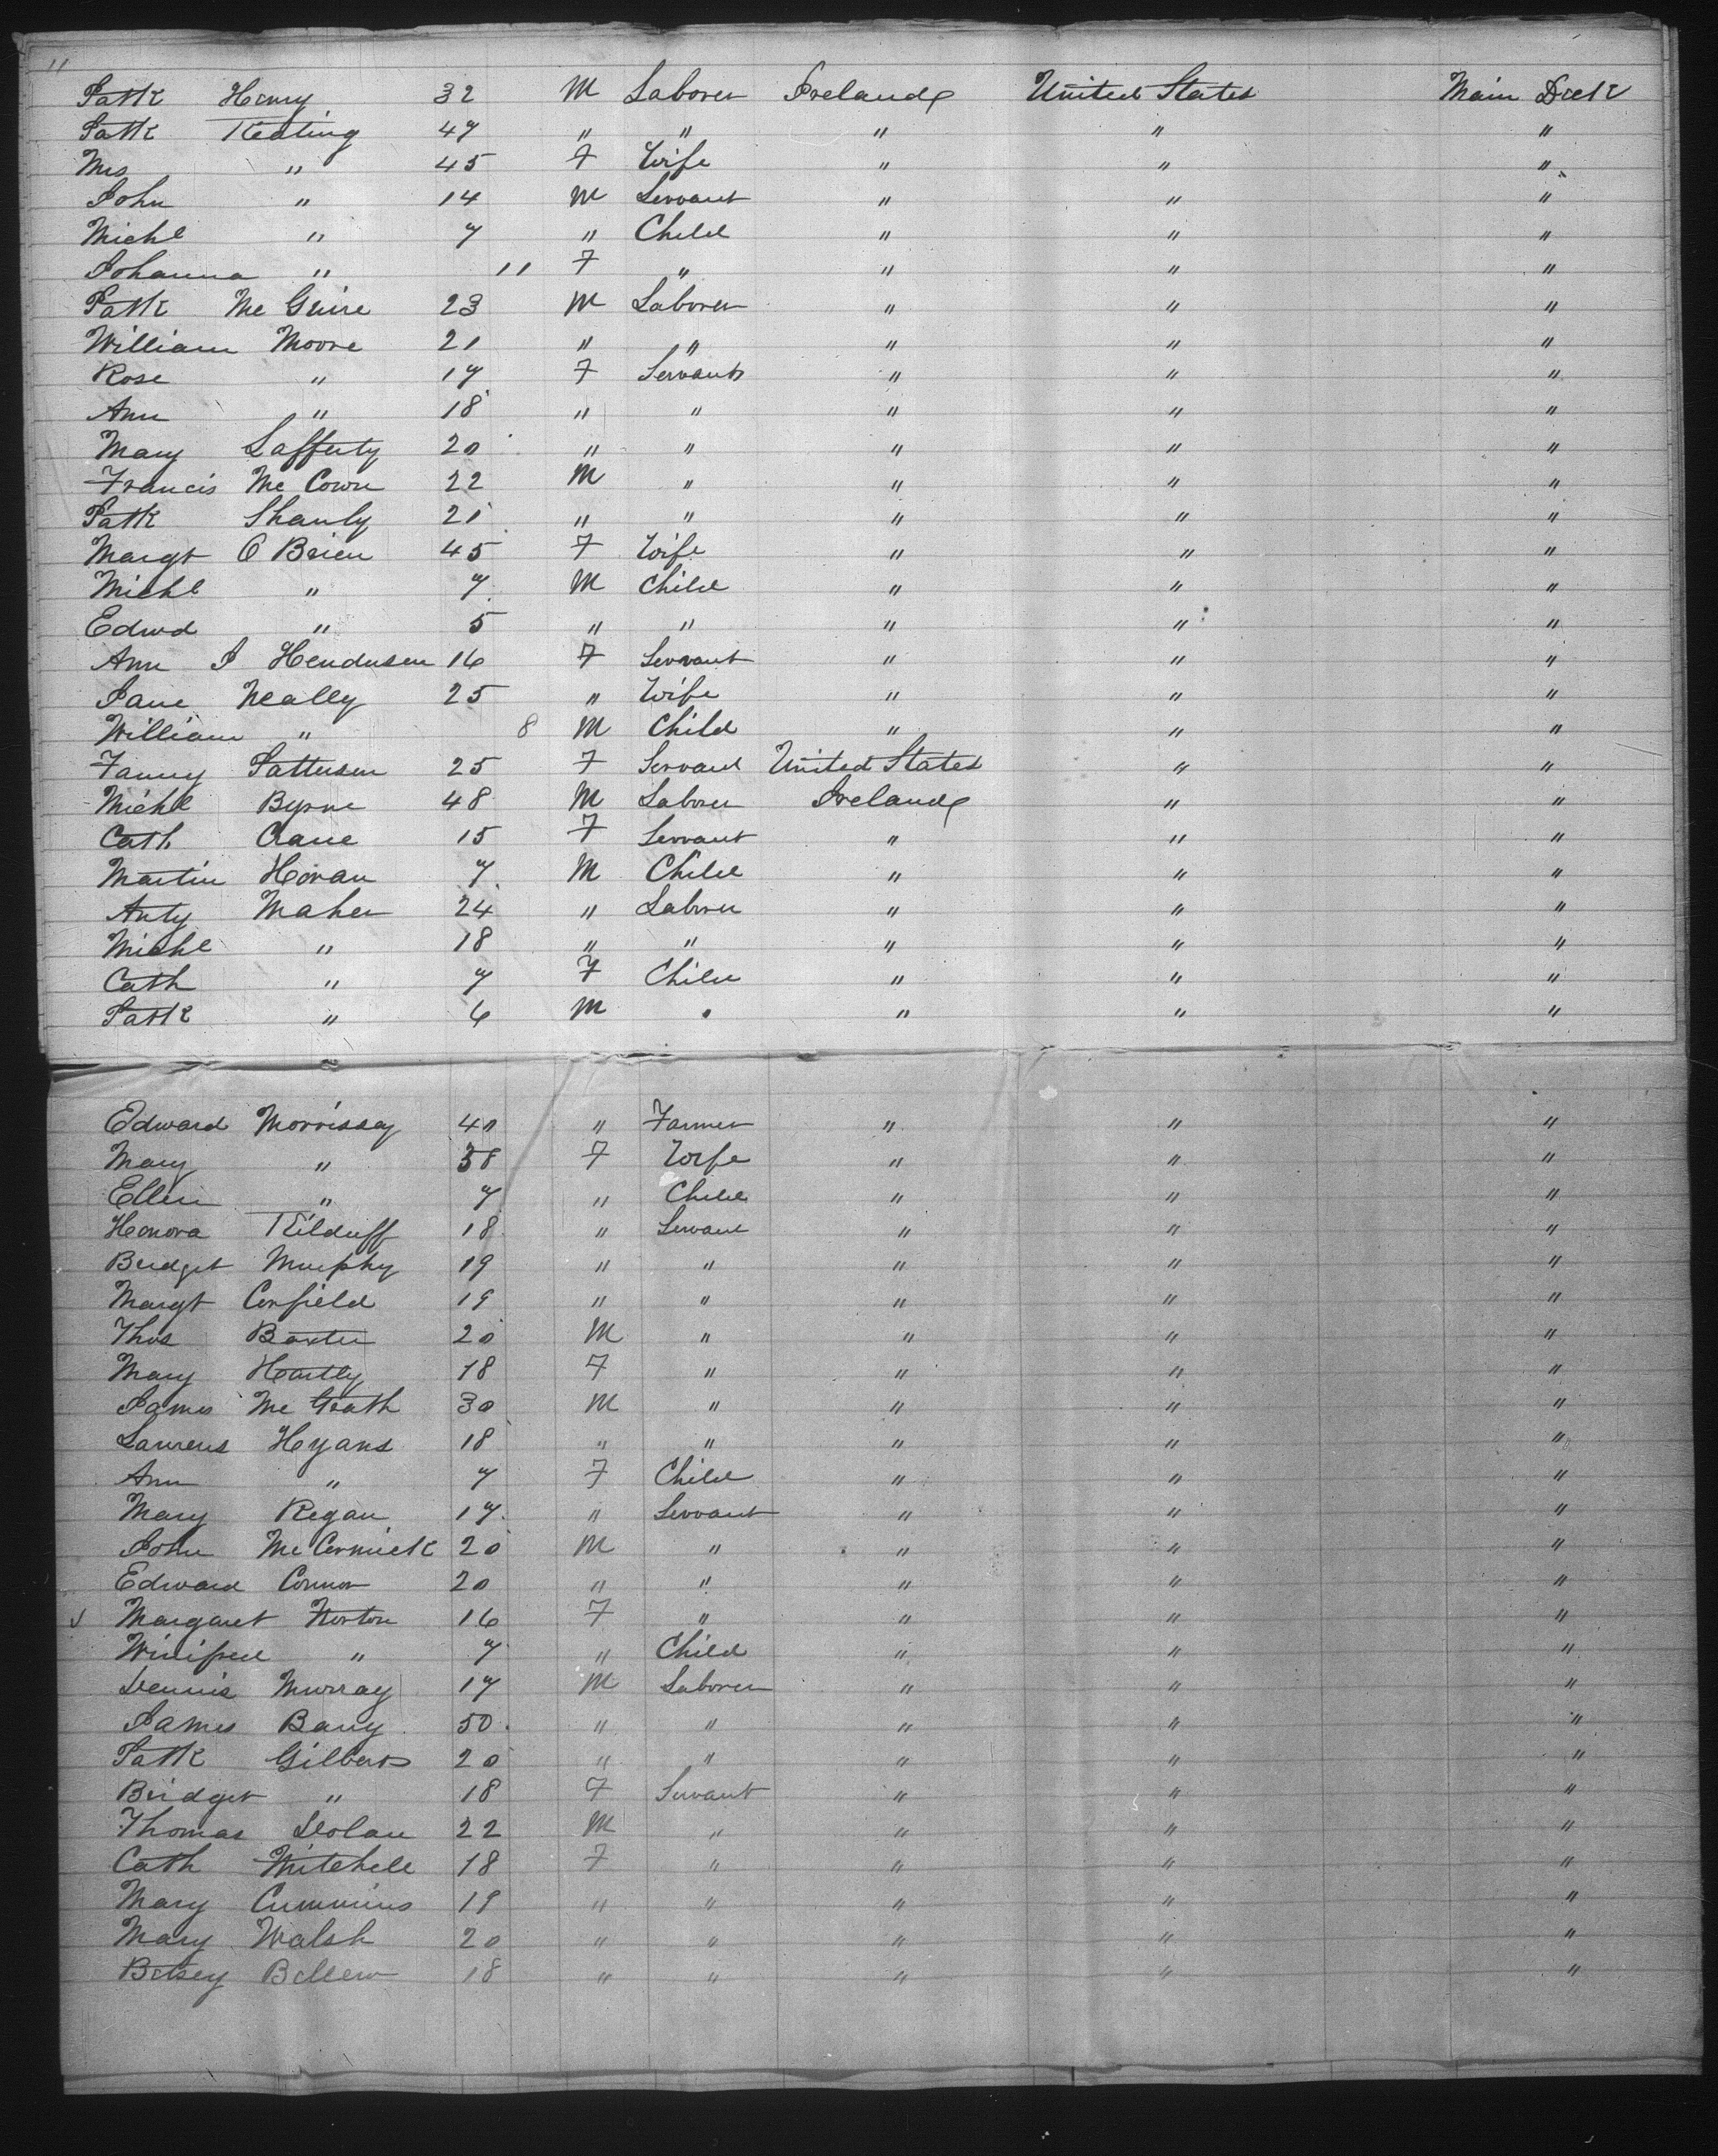 11
Patk Henry 32 M Laborer Ireland United States Main Deck
Patk Keating 47 " " " " "
Mrs " 45 F Wife " " "
John " 14 M Servant " " "
Michl " 7 " Child " " "
Johanna " 11 F " " " "
Patk Mc Guire 23 M Laborer " " "
William Moore 21 " " " " "
Rose " 17 F Servant " " "
Ann " 18 " " " " "
Mary Lafferty 20 " " " " "
Francis Mc Cown 22 M " " " "
Patk Shanly 21 " " " " "
Margt O Brien 45 F Wife " " "
Michl " 7 M Child " " "
Edwd " 5 " " " " "
Ann J Henderson 16 F Servant " " "
Jane Neally 25 " Wife " " "
William " 8 M Child " " "
Fanny Patterson 25 F Servant United States " "
Michl Byrne 48 M Laborer Ireland " "
Cath Crane 15 F Servant " " "
Martin Horan 7 M Child " " "
Anty Maher 24 " Laborer " " "
Michl " 18 " " " " "
Cath " 7 F Child " " "
Patk " 6 M " " " "
Edward Morrissey 40 " Farmer " " "
Mary " 38 F Wife " " "
Ellen " 7 " Child " " "
Honora Kilduff 18 " Servant " " "
Bridget Murphy 19 " " " " "
Margt Confield 19 " " " " "
Thos Baxter 20 M " " " "
Mary Hartly 18 F " " " "
James Mc Grath 30 M " " " "
Laurens Hyans 18 " " " " "
Ann " 7 F Child " " "
Mary Regan 17 " Servant " " "
John Mc Cormick 20 M " " " "
Edward Connor 20 " " " " "
Margaret Norton 16 F " " " "
Winifred " 7 " Child " " "
Dennis Murray 17 M Laborer " " "
James Barry 50 " " " " "
Patk Gilbert 20 " " " " "
Bridget " 18 F Servant " " "
Thomas Dolan 22 M " " " "
Cath Mitchell 18 F " " " "
Mary Cummins 19 " " " " "
Mary Walsh 20 " " " " "
Betsey Bellew 18 " " " " "